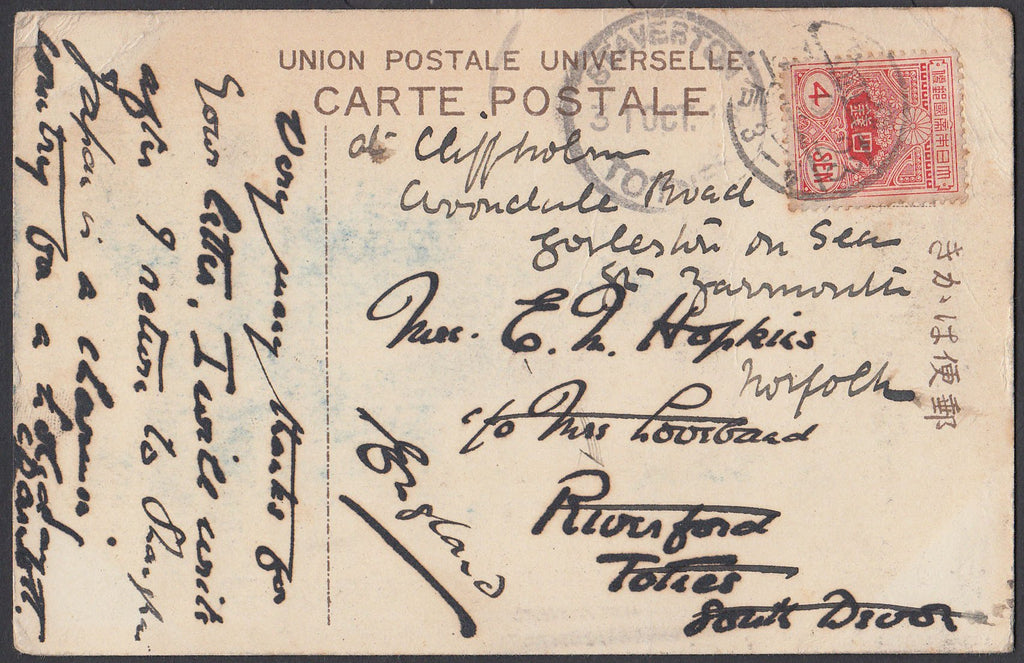 UNION POSTALE UNIVERSELLE
CARTE POSTALE
STAVERTON
31 OCT. 1
TOTNES
4
SEN
大日本帝國郵便
きかは便郵
at Cliffholm
Avondale Road
Gorleston on Sea
Gt Yarmouth
Mrs. E. N. Hopkins
Norfolk
c/o Mrs
Riverford
Totnes
South Devon
England
Very many thanks for
Your letter, I will write
after I return to Shanghai
Japan is a charming
country for a